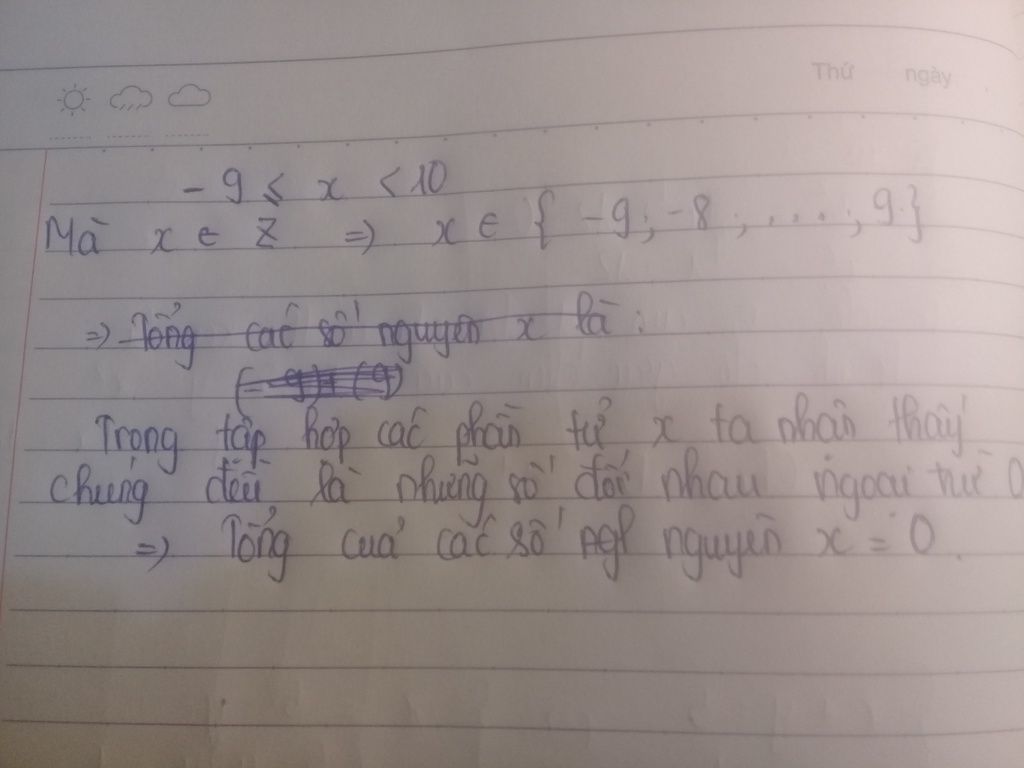 Thứ ngày
- 9 ≤ x < 10
Mà x ∈ Z => x ∈ { -9; -8; ....; 9.}
=> Tổng các số nguyên x là:
(-9)+(9)
Trong tập hợp các phần tử x ta nhận thấy
chúng đều là những số đối nhau ngoại trừ 0
=> Tổng của các số ngl nguyên x = 0.